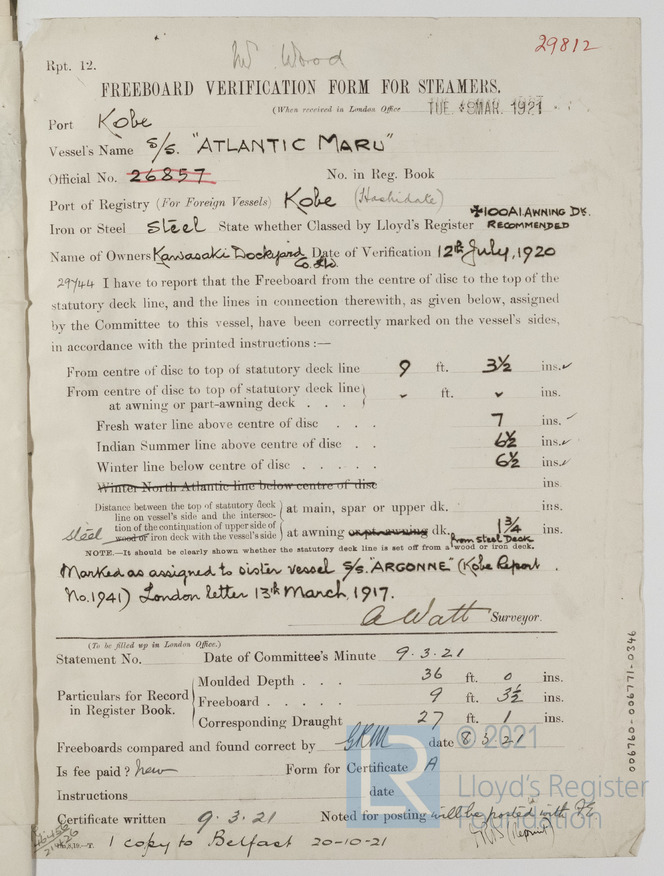 Rpt. 12.
Mr Wood
29812
FREEBOARD VERIFICATION FORM FOR STEAMERS.
(When received in London Office TUE 8 MAR. 1921
Port Kobe
Vessel's Name s/s. "ATLANTIC MARU"
Official No. 26857 No. in Reg. Book
Port of Registry (For Foreign Vessels) Kobe (Hashidate)
Iron or Steel Steel State whether Classed by Lloyd's Register ✠100A1. AWNING DK. RECOMMENDED
Name of Owners Kawasaki Dockyard Co. Ltd. Date of Verification 12th July, 1920
29744 I have to report that the Freeboard from the centre of disc to the top of the
statutory deck line, and the lines in connection therewith, as given below, assigned
by the Committee to this vessel, have been correctly marked on the vessel's sides,
in accordance with the printed instructions :—
From centre of disc to top of statutory deck line 9 ft. 3½ ins.
From centre of disc to top of statutory deck line
at awning or part-awning deck . . . ft. ins.
Fresh water line above centre of disc . . . 7 ins.
Indian Summer line above centre of disc . . 6½ ins.
Winter line below centre of disc . . . . . 6½ ins.
Winter North Atlantic line below centre of disc ins
Distance between the top of statutory deck
line on vessel's side and the intersec-
tion of the continuation of upper side of
steel wood or iron deck with the vessel's side
at main, spar or upper dk. ins.
at awning or pt. awning dk. 1¾ ins.
from steel Deck
NOTE.—It should be clearly shown whether the statutory deck line is set off from a wood or iron deck.
Marked as assigned to sister vessel s/s. "ARGONNE" (Kobe Report
No. 1941) London letter 13th March, 1917.
A Watt Surveyor.
(To be filled up in London Office.)
Statement No. Date of Committee's Minute 9.3.21
Particulars for Record in Register Book.
Moulded Depth . . . 36 ft. 0 ins.
Freeboard . . . . . 9 ft. 3½ ins.
Corresponding Draught 27 ft. 1 ins.
Freeboards compared and found correct by GRM date 8 3 21
Is fee paid? Form for Certificate A
Instructions date
Certificate written 9.3.21 Noted for posting will be posted with FE
(Reprint)
1 copy to Belfast 20-10-21
006760-006771-0346
© 2021
Lloyd's Register
Foundation
LR